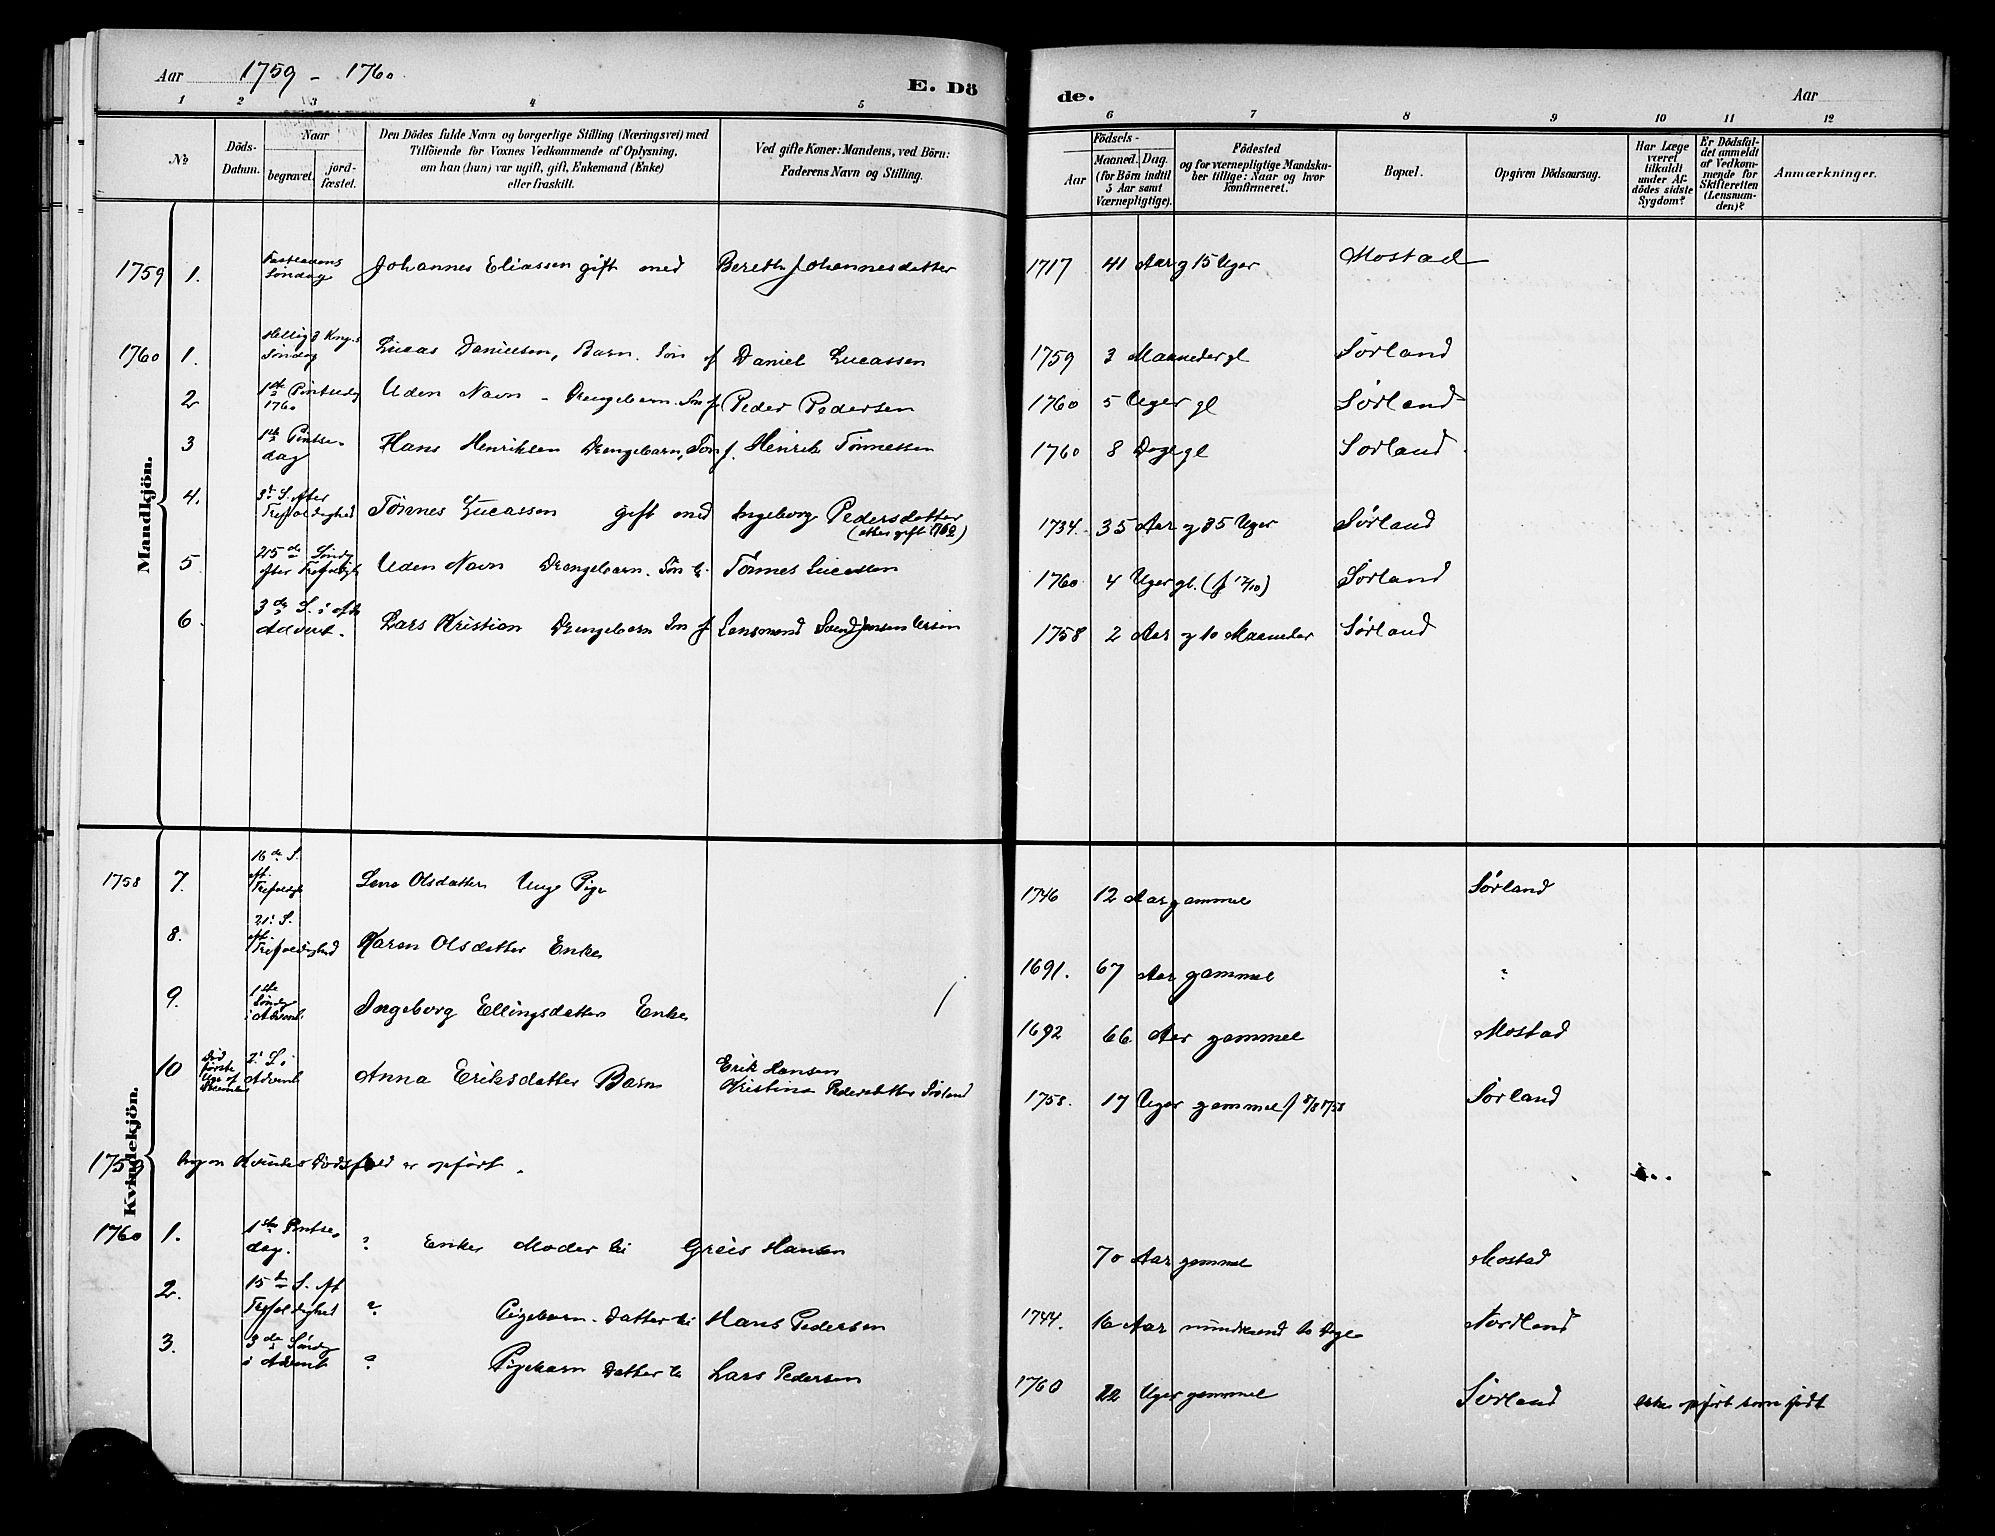 Aar 1759 - 1760
E. Dö
de.
Aar
1 2 3 4 5 6 7 8 9 10 11 12
№
Döds-Datum.
Naar
begravet.
jord-fæstet.
Den Dödes fulde Navn og borgerlige Stilling (Næringsvei) med
Tilföiende for Voxnes Vedkommende af Oplysning,
om han (hun) var ugift, gift, Enkemand (Enke)
eller fraskilt.
Ved gifte Koner: Mandens, ved Börn:
Faderens Navn og Stilling.
Födsels-
Aar
Maaned. Dag.
(for Börn indtil
5 Aar samt
Værnepligtige).
Födested
og for værnepligtige Mandska-
ber tillige: Naar og hvor
konfirmeret.
Bopæl.
Opgiven Dödsaarsag.
Har Læge
været
tilkaldt
under Af-
dödes sidste
Sygdom?
Er Dødsfal-
det anmeldt
af Vedkom-
mende for
Skifteretten
(Lensman-
den)?
Anmærkninger.
Mandkjön.
1759 1. Fastelavens Søndag Johannes Eliassen gift med Bereth Johannesdatter 1717 41 Aar og 15 Uger Mostad
1760 1. Hellig 3 Kong.s Søndag Lucas Danielsen, Barn. Søn af Daniel Lucassen 1759 3 Maaneder gl Sørland
2 1ste Pintsedg 1760 Uden Navn - Drengebarn. Søn af Peder Pedersen 1760 5 Uger gl Sørland
3 1ste Pintse-dag Hans Henriksen Drengebarn, Søn f. Henrik Tønnessen 1760 8 Dage gl Sørland
4. 3. S. After Trefoldighed Tønnes Lucassen gift med Ingeborg Pedersdatter 1734. 35 Aar og 35 Uger Sørland
(etter gift 1760)
5 Søndg after Trefoldigh Uden Navn Drengebarn. Søn til Tønnes Lucassen 1760 4 Uger gl. (f 12/10) Sørland
6. 3de S. i Advent. Lars Kristian Drengebarn Søn af Lensmand Svend Jensen 1758 2 Aar og 10 Maaneder Sørland
Kvindekjön.
1758 7. 16de S. aft. Trefoldigh Lena Olsdatter Unge Pige 1746 12 Aar gammel Sørland
8. 21. S. aft. Trefoldighed Karen Olsdatter Enke 1691. 67 Aar gammel ?
9. 1ste Søndg i Advent. Ingeborg Ellingsdatter Enke 1692 66 Aar gammel Mostad
10 Død første Uge af December 2. S. i Advent Anna Eriksdatter Barn Erik Hansen
Kristina Pedersdatter Sørland 1758. 17 Uger gammel f 8/8 1758 Sørland
1759 Ingen Kvindes Dødsfald er opført.
1760 1. 1ste Pintse-dag. ? Enke Moder til Greis Hansen 70 Aar gammel Mostad
2. 15de S. aft Trefoldighed ? Pigebarn. Datter til Hans Pedersen 1744. 16 Aar mindkend 10 Dage Nordland
3. 3de Søndg i Advent ? Pigebarn Datter til Lars Pedersen 1760 22 Uger gammel Sørland ikke opført som født